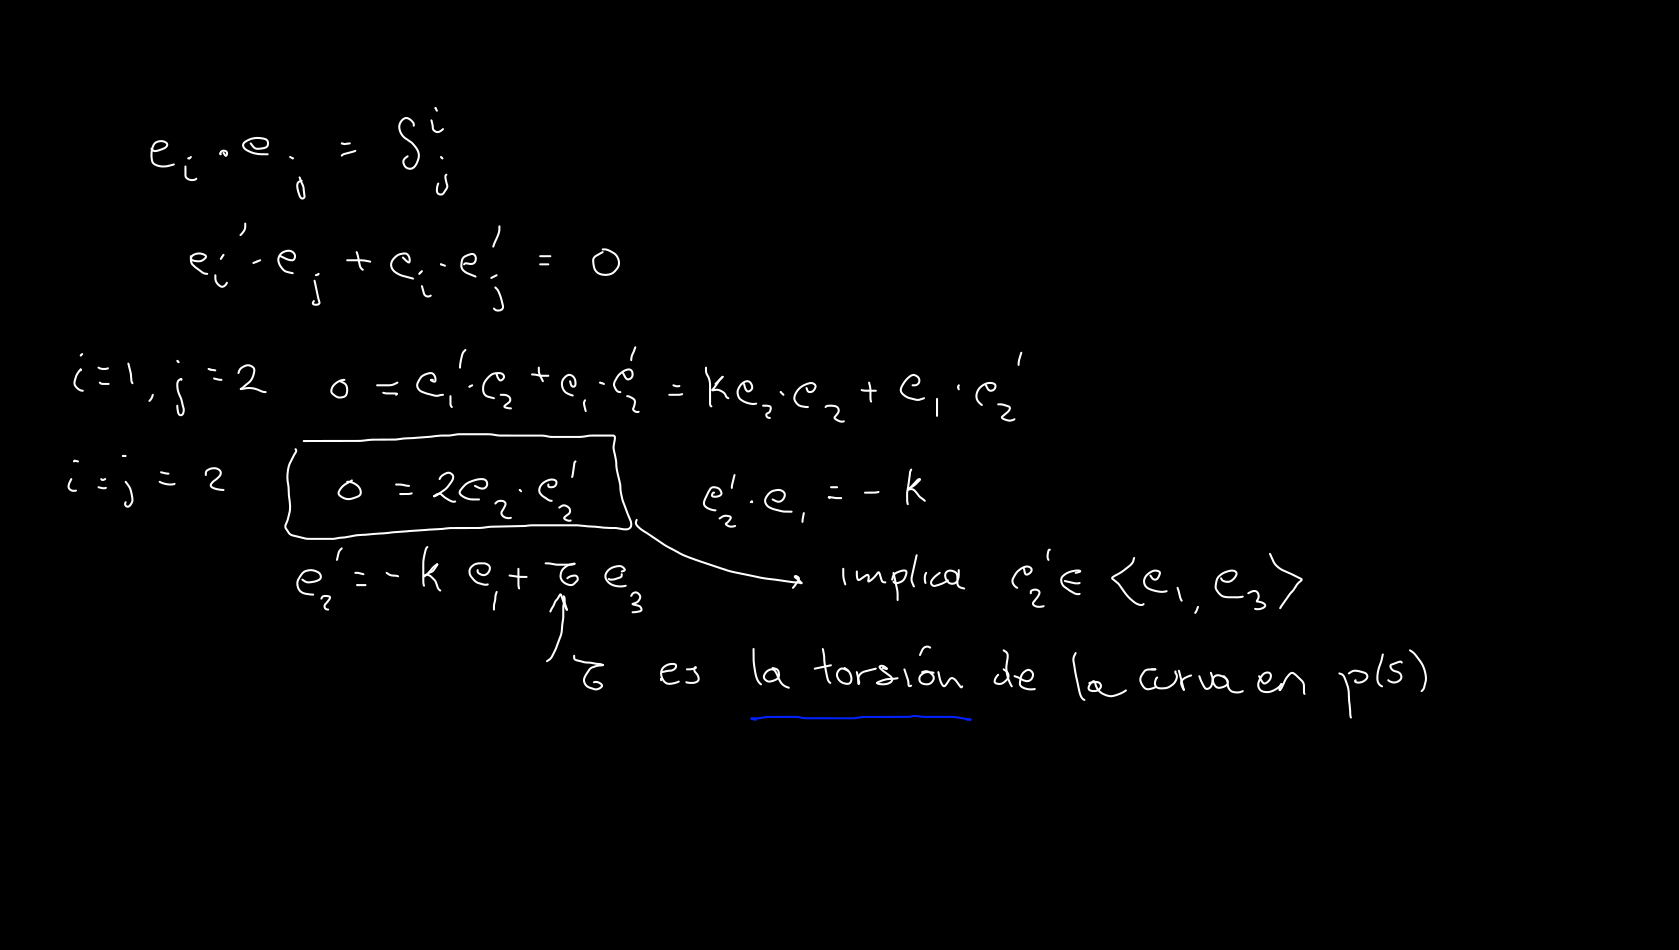 e_i · e_j = δ^i_j
e_i' · e_j + e_i · e_j' = 0
i=1, j=2 0 = e_1' · e_2 + e_1 · e_2' = k e_2 · e_2 + e_1 · e_2'
i=j=2 0 = 2e_2 · e_2' e_2' · e_1 = -k
e_2' = -k e_1 + τ e_3 implica e_2' ∈ ⟨e_1, e_3⟩
τ es la torsión de la curva en p(s)